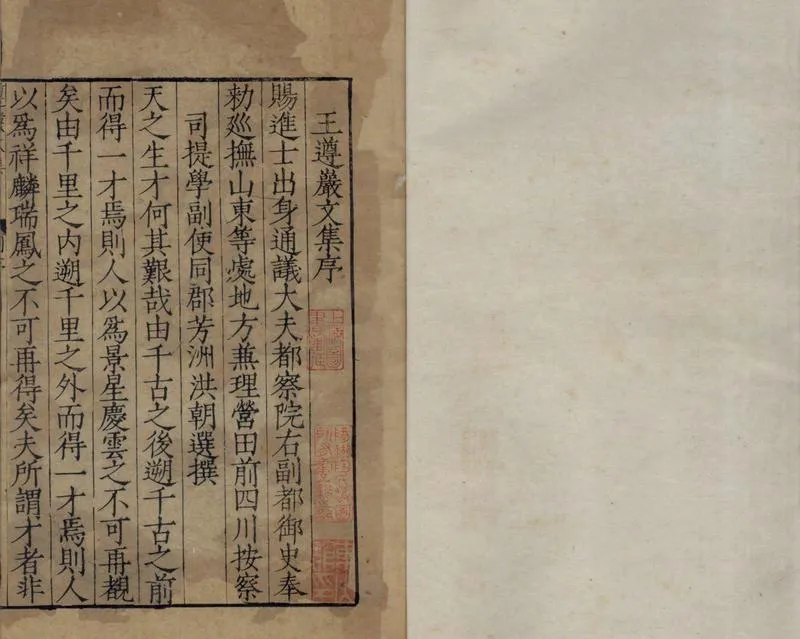 王遵巖文集序
賜進士出身通議大夫都察院右副都御史奉
勑廵撫山東等處地方兼理營田前四川按察
司提學副使同郡芳洲洪朝選撰
天之生才何其艱哉由千古之後遡千古之前
而得一才焉則人以爲景星慶雲之不可再覩
矣由千里之内遡千里之外而得一才焉則人
以爲祥麟瑞鳳之不可再得矣夫所謂才者非